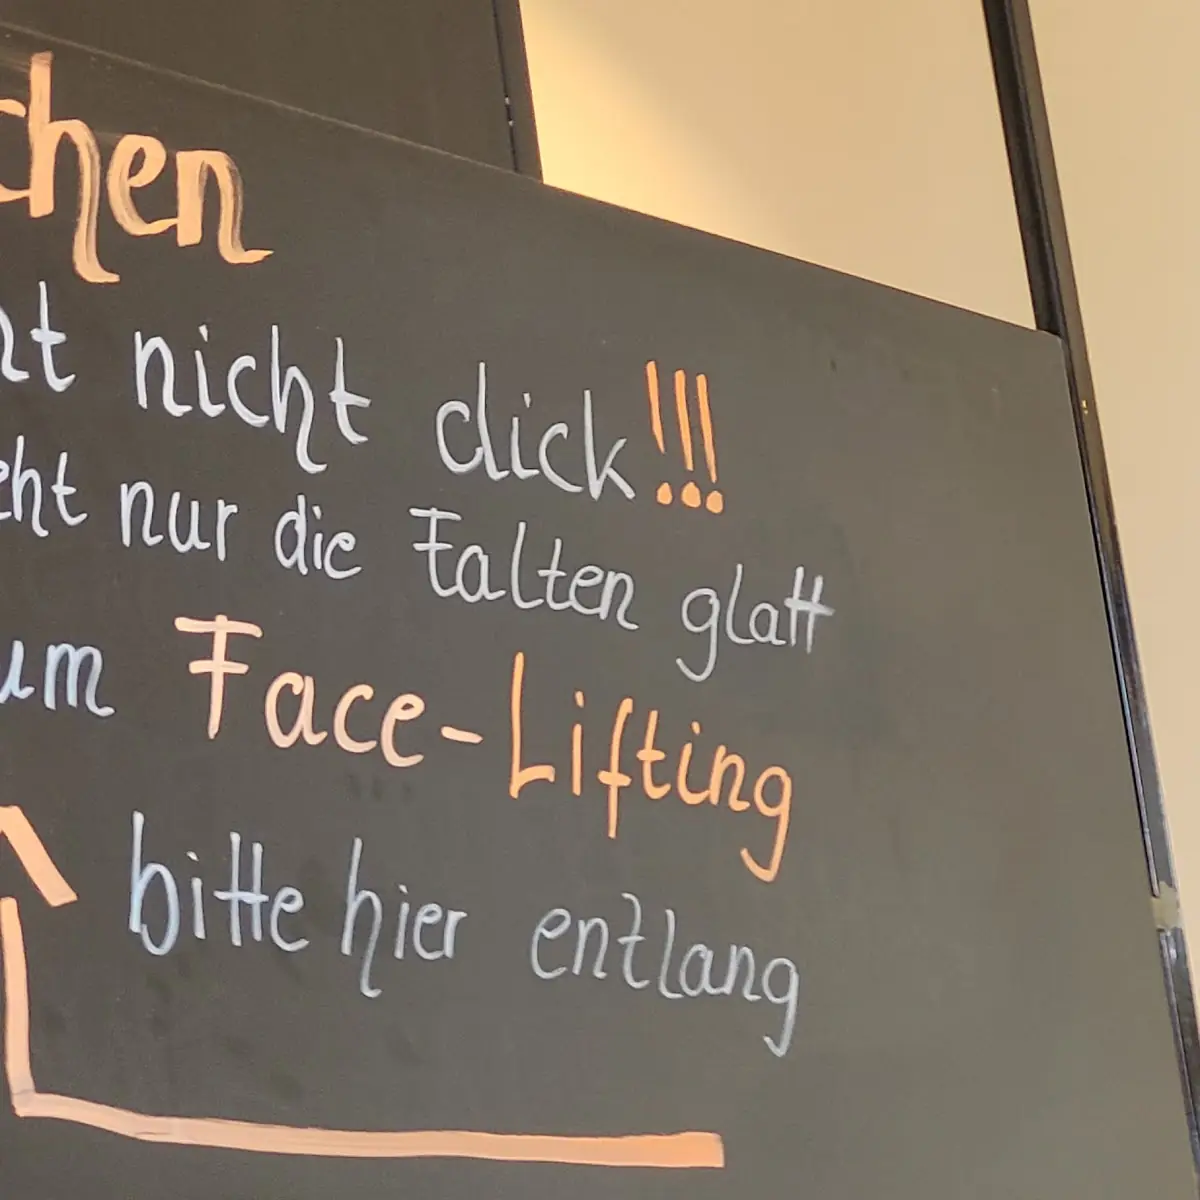 chen
ht nicht dick!!!
eht nur die Falten glatt
um Face-Lifting
bitte hier entlang